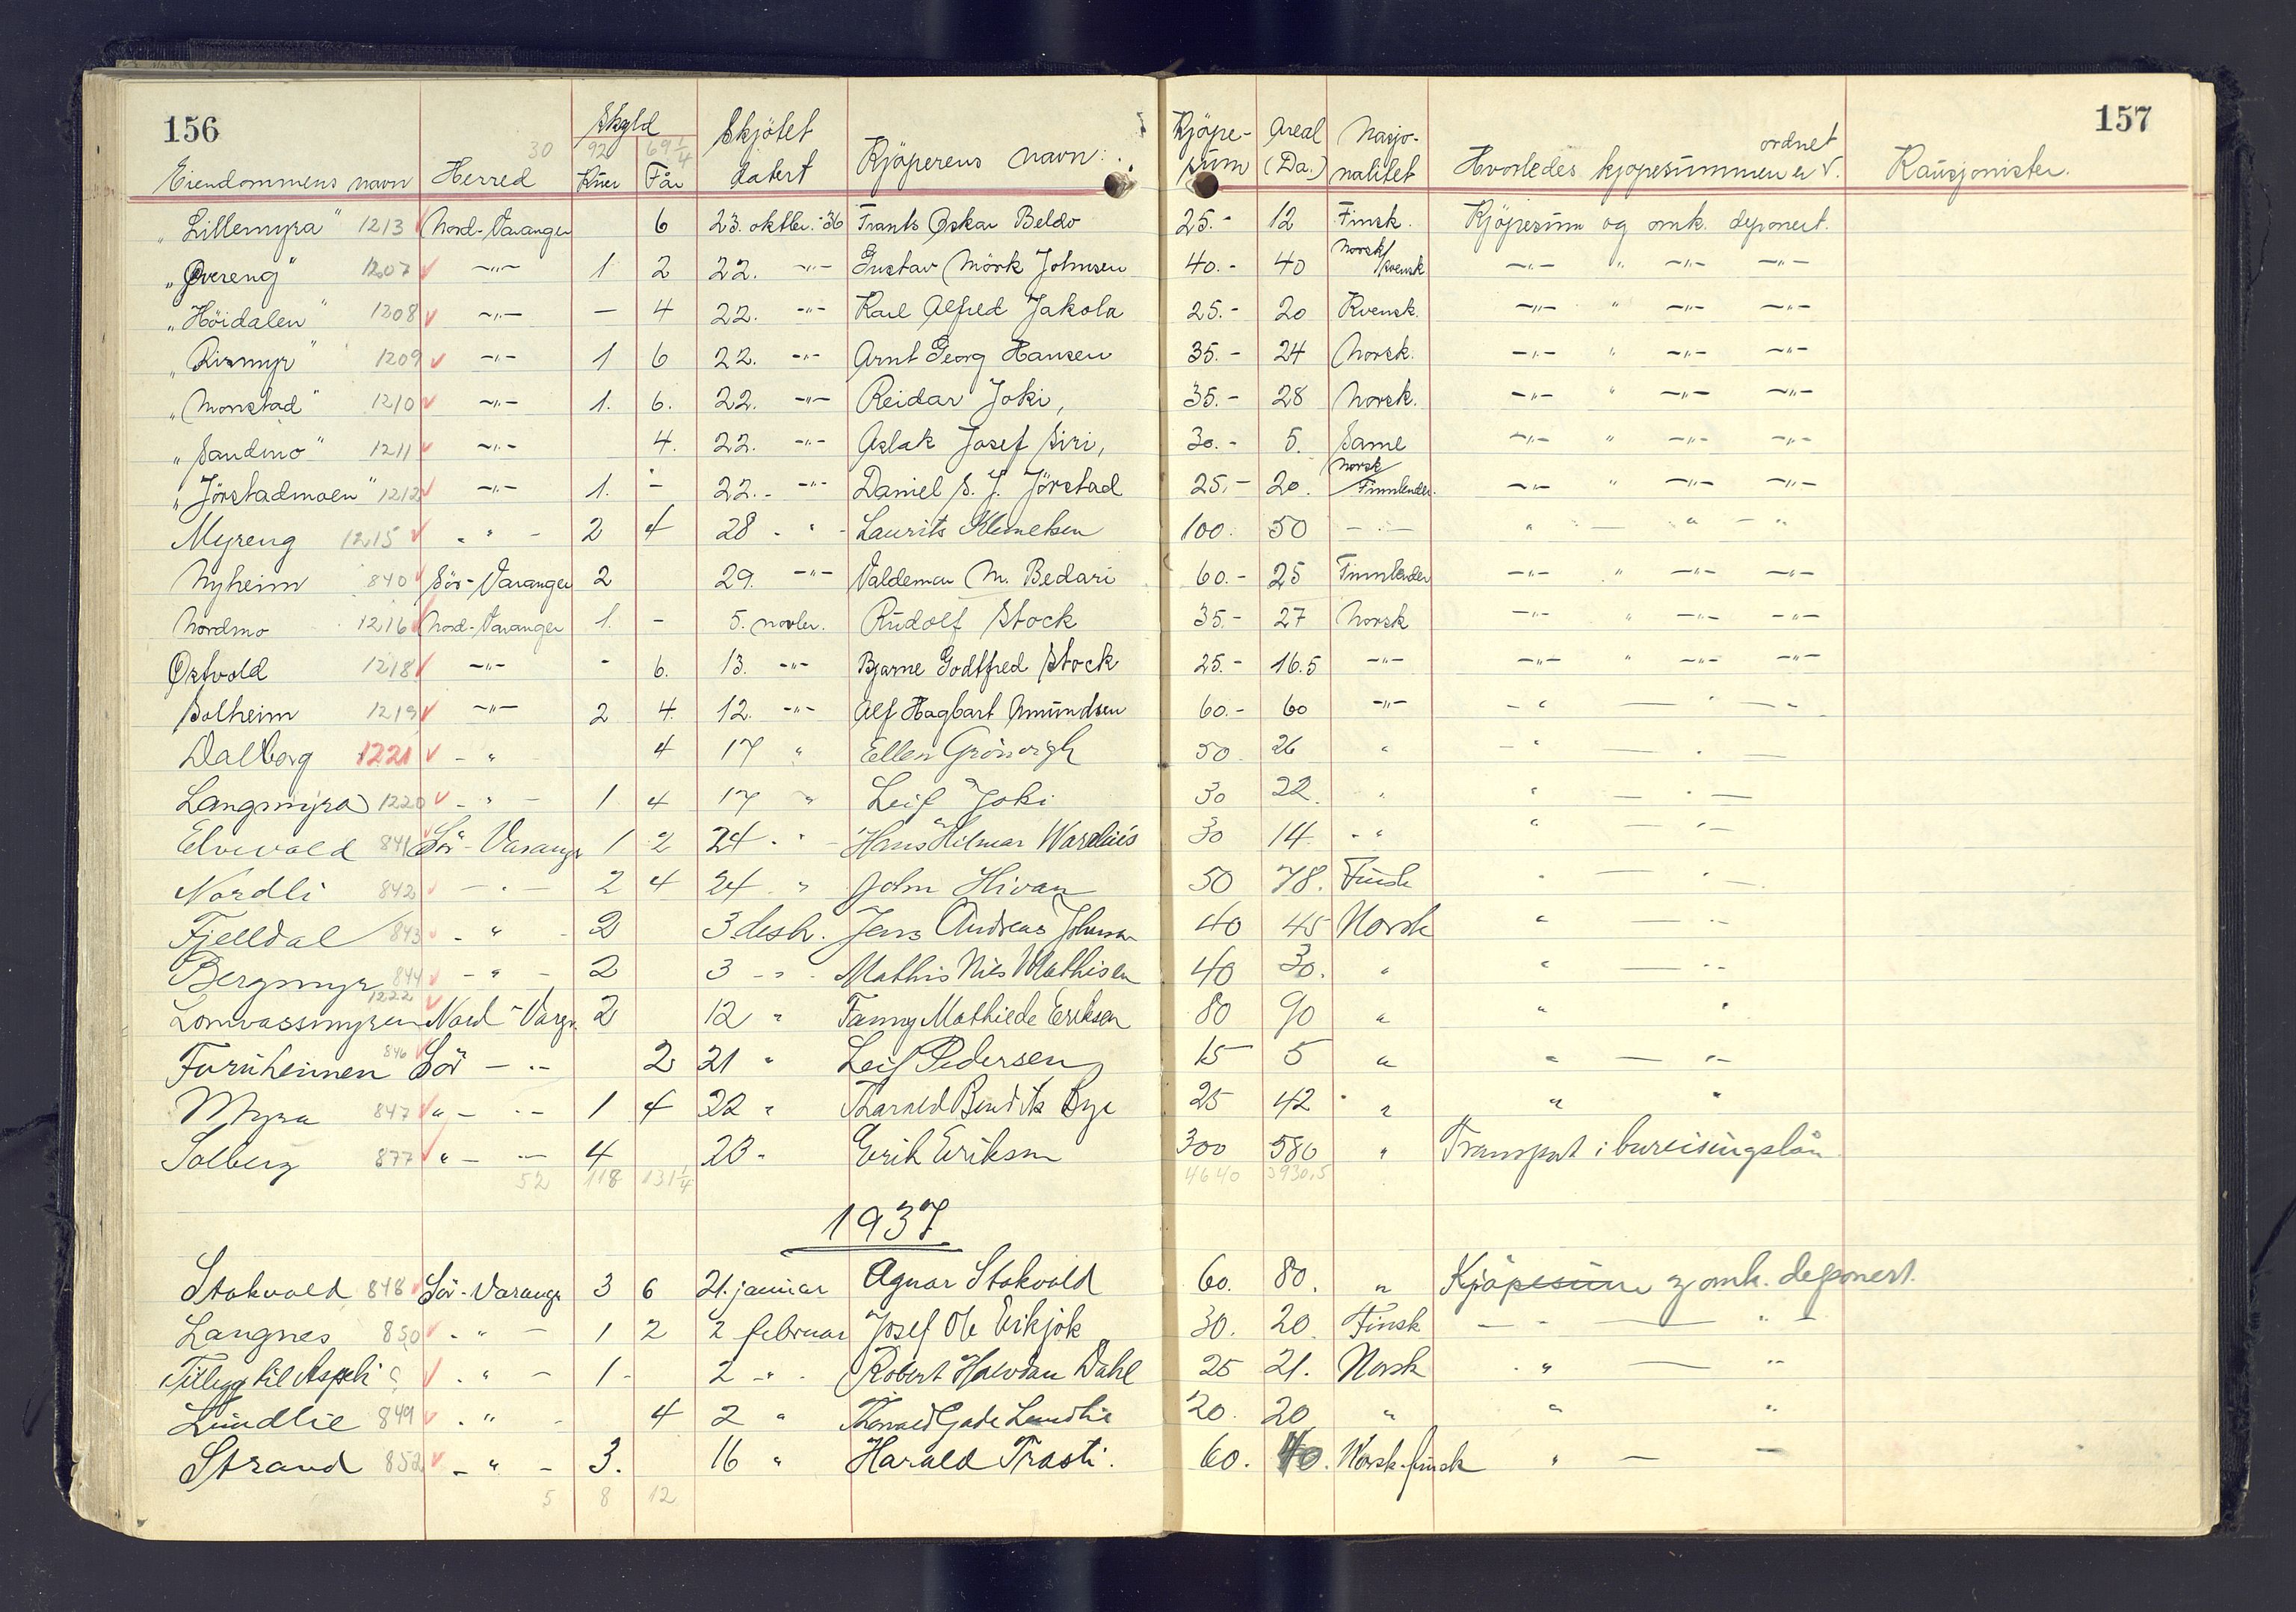 156 157
Skyld Skjötet Kjöpe- Areal Nasjo- ordnet
30 92 69 1/4
Eiendommens navn Herred Kuer Får datert Kjöperens navn: sum (Da.) nalitet Hvorledes kjøpesummen er √. Kausjonister.
„Lillemyra" 1213 Nord-Varanger 6 23. oktbr. -36 Frants Oskar Beldo 25.- 12 Finsk. Kjöpesum og omk. deponert.
„Övereng" 1207 √ -"- 1 2 22. -"- Gustav Mörk Johnsen 40.- 40 Norsk/kvensk -"- " -"- -"-
„Höidalen" 1208 √ -"- - 4 22. -"- Karl Alfred Jakola 25.- 20 Kvensk. -"- " -"- -"-
„Rismyr" 1209 √ -"- 1 6 22. -"- Arnt Georg Hansen 35.- 24 Norsk. -"- " -"- -"-
„Monstad" 1210 √ -"- 1. 6. 22. -"- Reidar Joki, 35.- 28 Norsk. -"- " -"- -"-
„Sandmo" 1211 √ -"- 4. 22. -"- Aslak Josef Siri, 30.- 5. Same -"- " -"- -"-
„Jörstadmoen" 1212 √ -"- 1. - 22. -"- Daniel S. J. Jörstad 25.- 20. Norsk/Finnlender. -"- " -"- -"-
Myreng 1215 √ " " - 2 4 28 - " - Laurits Klemetsen 100. 50 - " - " - " - "
Nyheim 840 √ Sör-Varanger 2 29. -"- Valdemar M. Bedari 60.- 25 Finnlender -"- " -"- -"-
Nordmo 1216 √ Nord-Varanger 1. - 5. novbr. Rudolf Stock 35.- 27 Norsk -"- " -"- -"-
Østvold 1218 √ -"- - 6. 13. -"- Bjarne Godtfred Stock 25.- 16.5 -"- -"- " -"- -"-
Solheim 1219 √ -"- 2 4. 12. -"- Alf Hagbart Amundsen 60.- 60 -"- - " - -
Dalborg 1221 √ - " 4 17 " Ellen Grönvigh 50. 26 " - " - -
Langmyra 1220 √ - " - 1 4 17 " Leif Joki 30 22. " " - -
Elvevold 841 √ Sör-Varanger 1 2 24 - " - Hans Hilmar 30 14. - " " - -
Nordli 842 √ - " - 2 4 24 " John Hivan 50 78. Finsk " - -
Fjelldal 843 √ - " - 2 3 desb. Jens Andreas Johnsen 40 45 Norsk " - -
Bergmyr 844 √ - " - 2 3 - " - Mathis Nils Mathisen 40 30. " " - -
Lomvassmyren 1222 √ Nord-Varger. 2 12 " Fanny Mathilde Eriksen 80 90 " " "
Furuheimen 846 √ Sör - " - 2 21 " Leif Pedersen 15 5 " " - -
Myra 847 √ " - " - 1 4 22 " Harald Bye 25 42 " " "
Solberg 877 √ " - " - 4 23. Erik Eriksen 300 580 " Transport i bureisingslån
52 118 131 1/4 4640 3930,5
1937
Stokvold 848 √ Sör-Varanger 3 6 21. januar Agnar Stokvold 60. 80. " Kjöpesum og omk. deponert.
Langnes 850 √ - " - 1 2 2 februar Josef Ole Eikjok 30. 20. Finsk - " - "
Tillegg til Aspeli √ - " - 1 - 2 - " - Robert Halvdan Dahl 25 21. Norsk - " - "
Lundlie 849 √ - " - 4 2 " Thorvald Gade Lundlie 20. 20 " " "
Strand 852 √ - " - 3. 16 " Harald Trasti. 60. 40. Norsk-finsk " - -
5 8 12